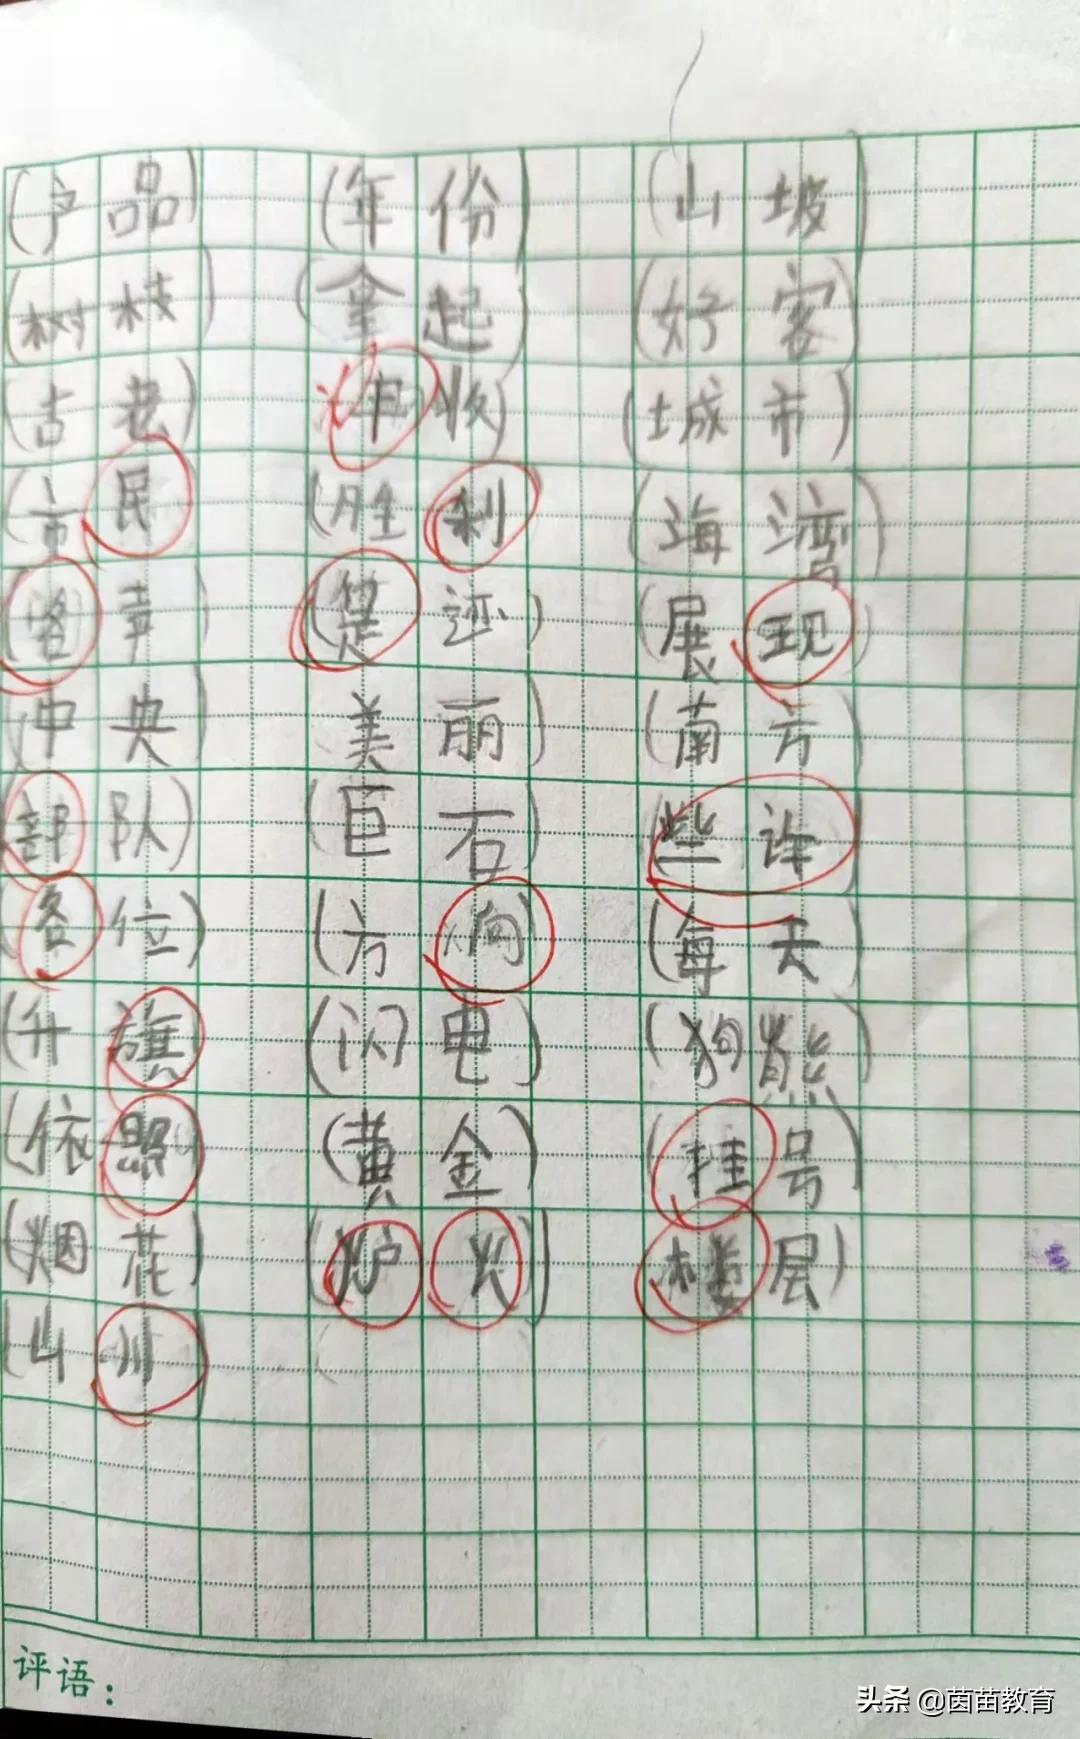 (产品) (年份) (山坡)
(树枝) (拿起) (好客)
(古老) 收) (城市)
(市民) (胜利) (海湾)
声) 还) (展现)
(中央 美丽) (南方
部队) (巨石) (些许
(各位) (方向) (每天)
(升旗 (闪电) (狗熊)
(依照 (黄金) (挂号)
(烟花) (炉火) (楼层)
(山川
评语：
头条 @茵苗教育